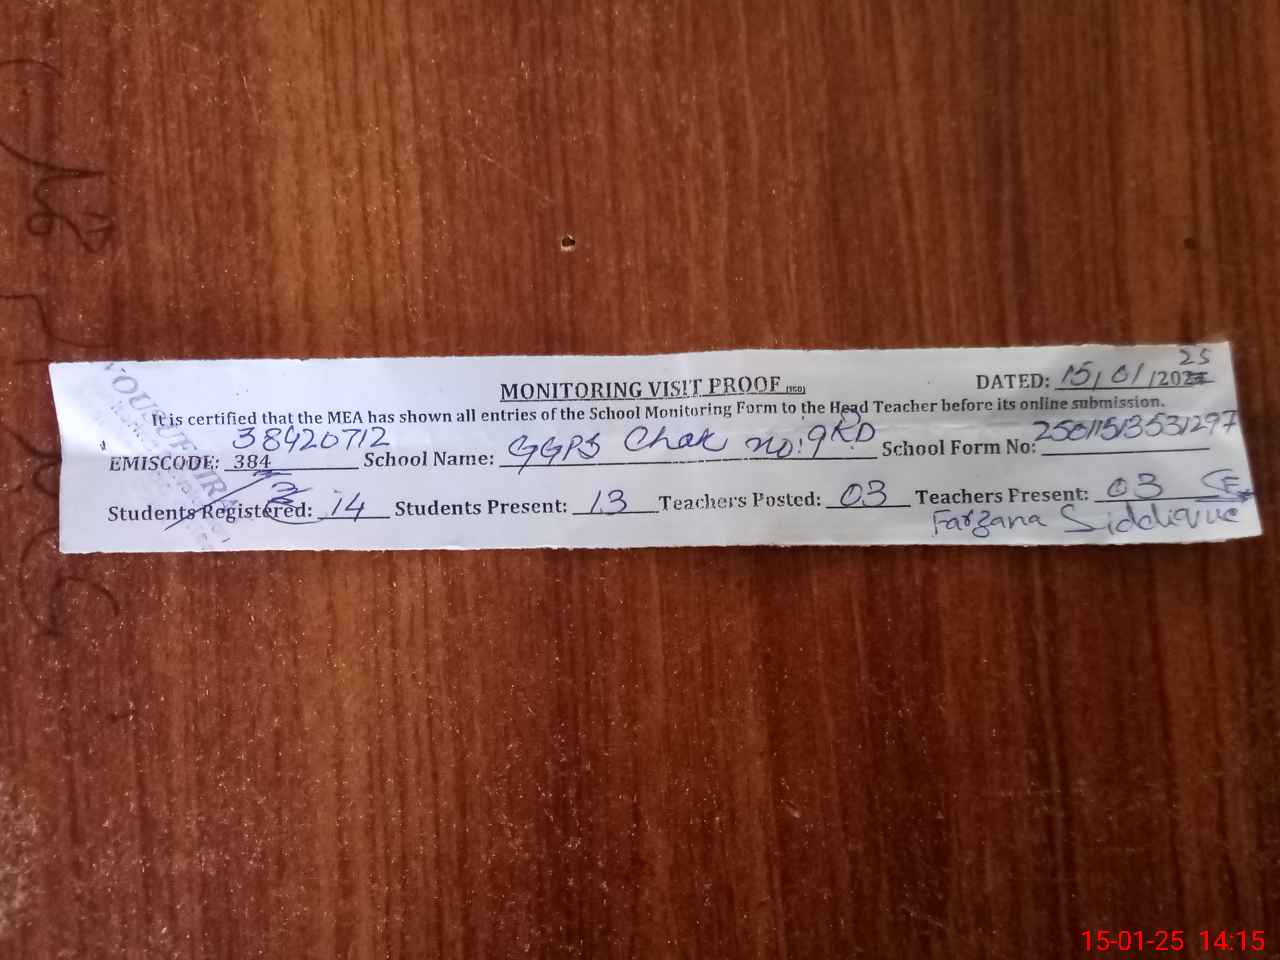 MONITORING VISIT PROOF
DATED: 15/01/2025
It is certified that the MEA has shown all entries of the School Monitoring Form to the Head Teacher before its online submission.
38420712
EMISCODE: 384 School Name: GGPS Chak no: 9RD School Form No:
Students Registered: 14 Students Present: 13 Teachers Posted: 03 Teachers Present: 03
Farzana Siddique
15-01-25 14:15